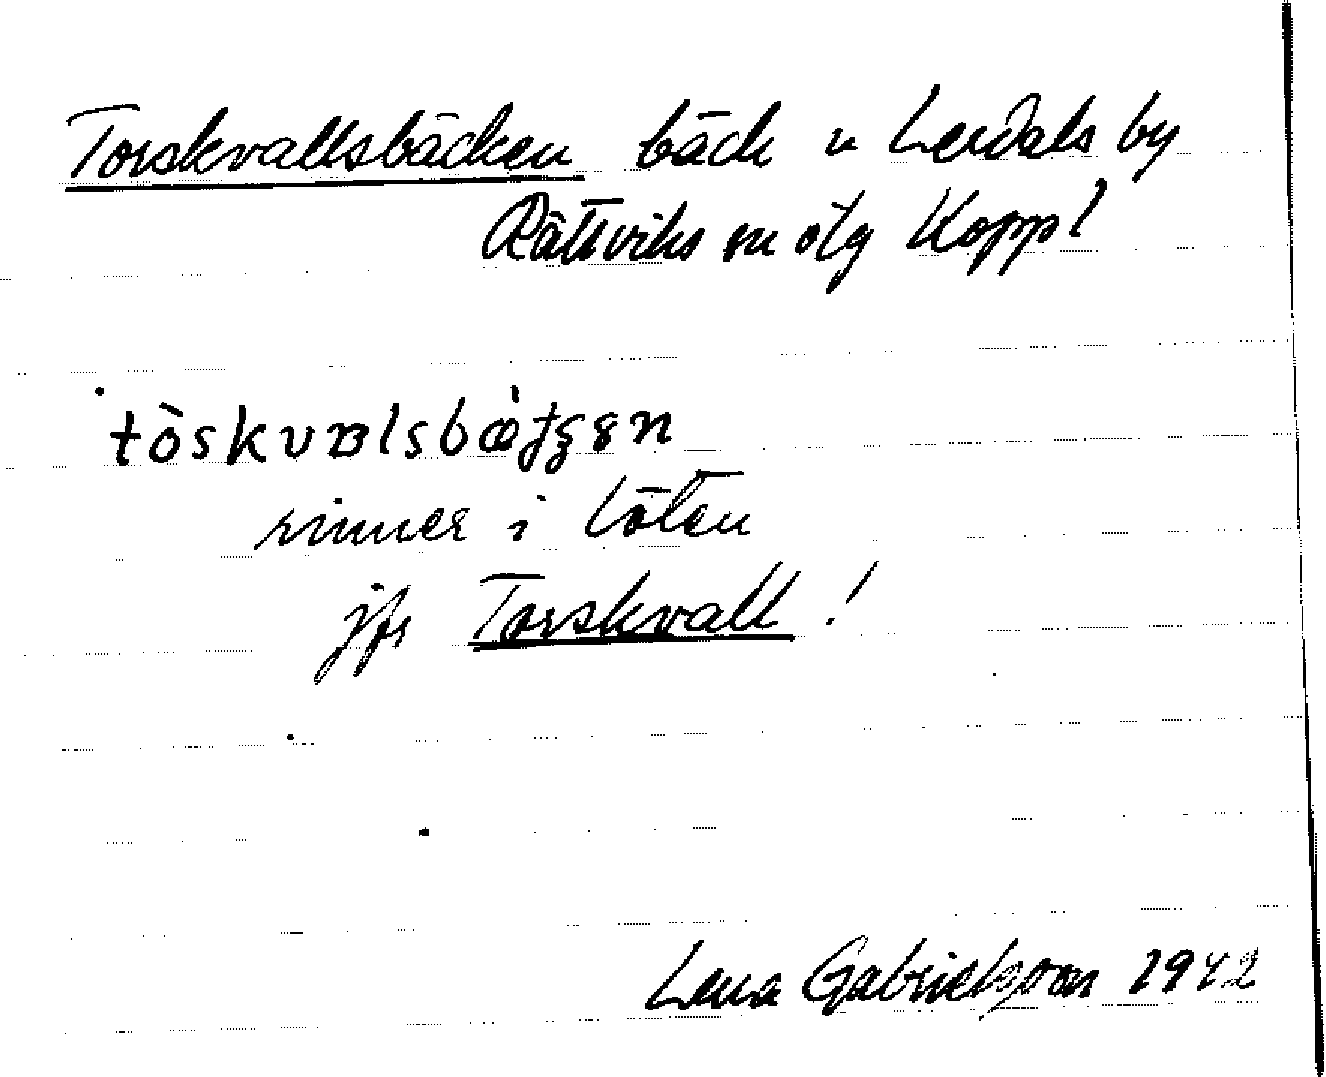 Torskvallsbäcken bäck i Lerdals by
Rättviks sn ö͡lg Koppl
tòskvalsbæ̀tʃen
rinner i Löten
jfr Torskvall!
Lena Gabrielsson 1942